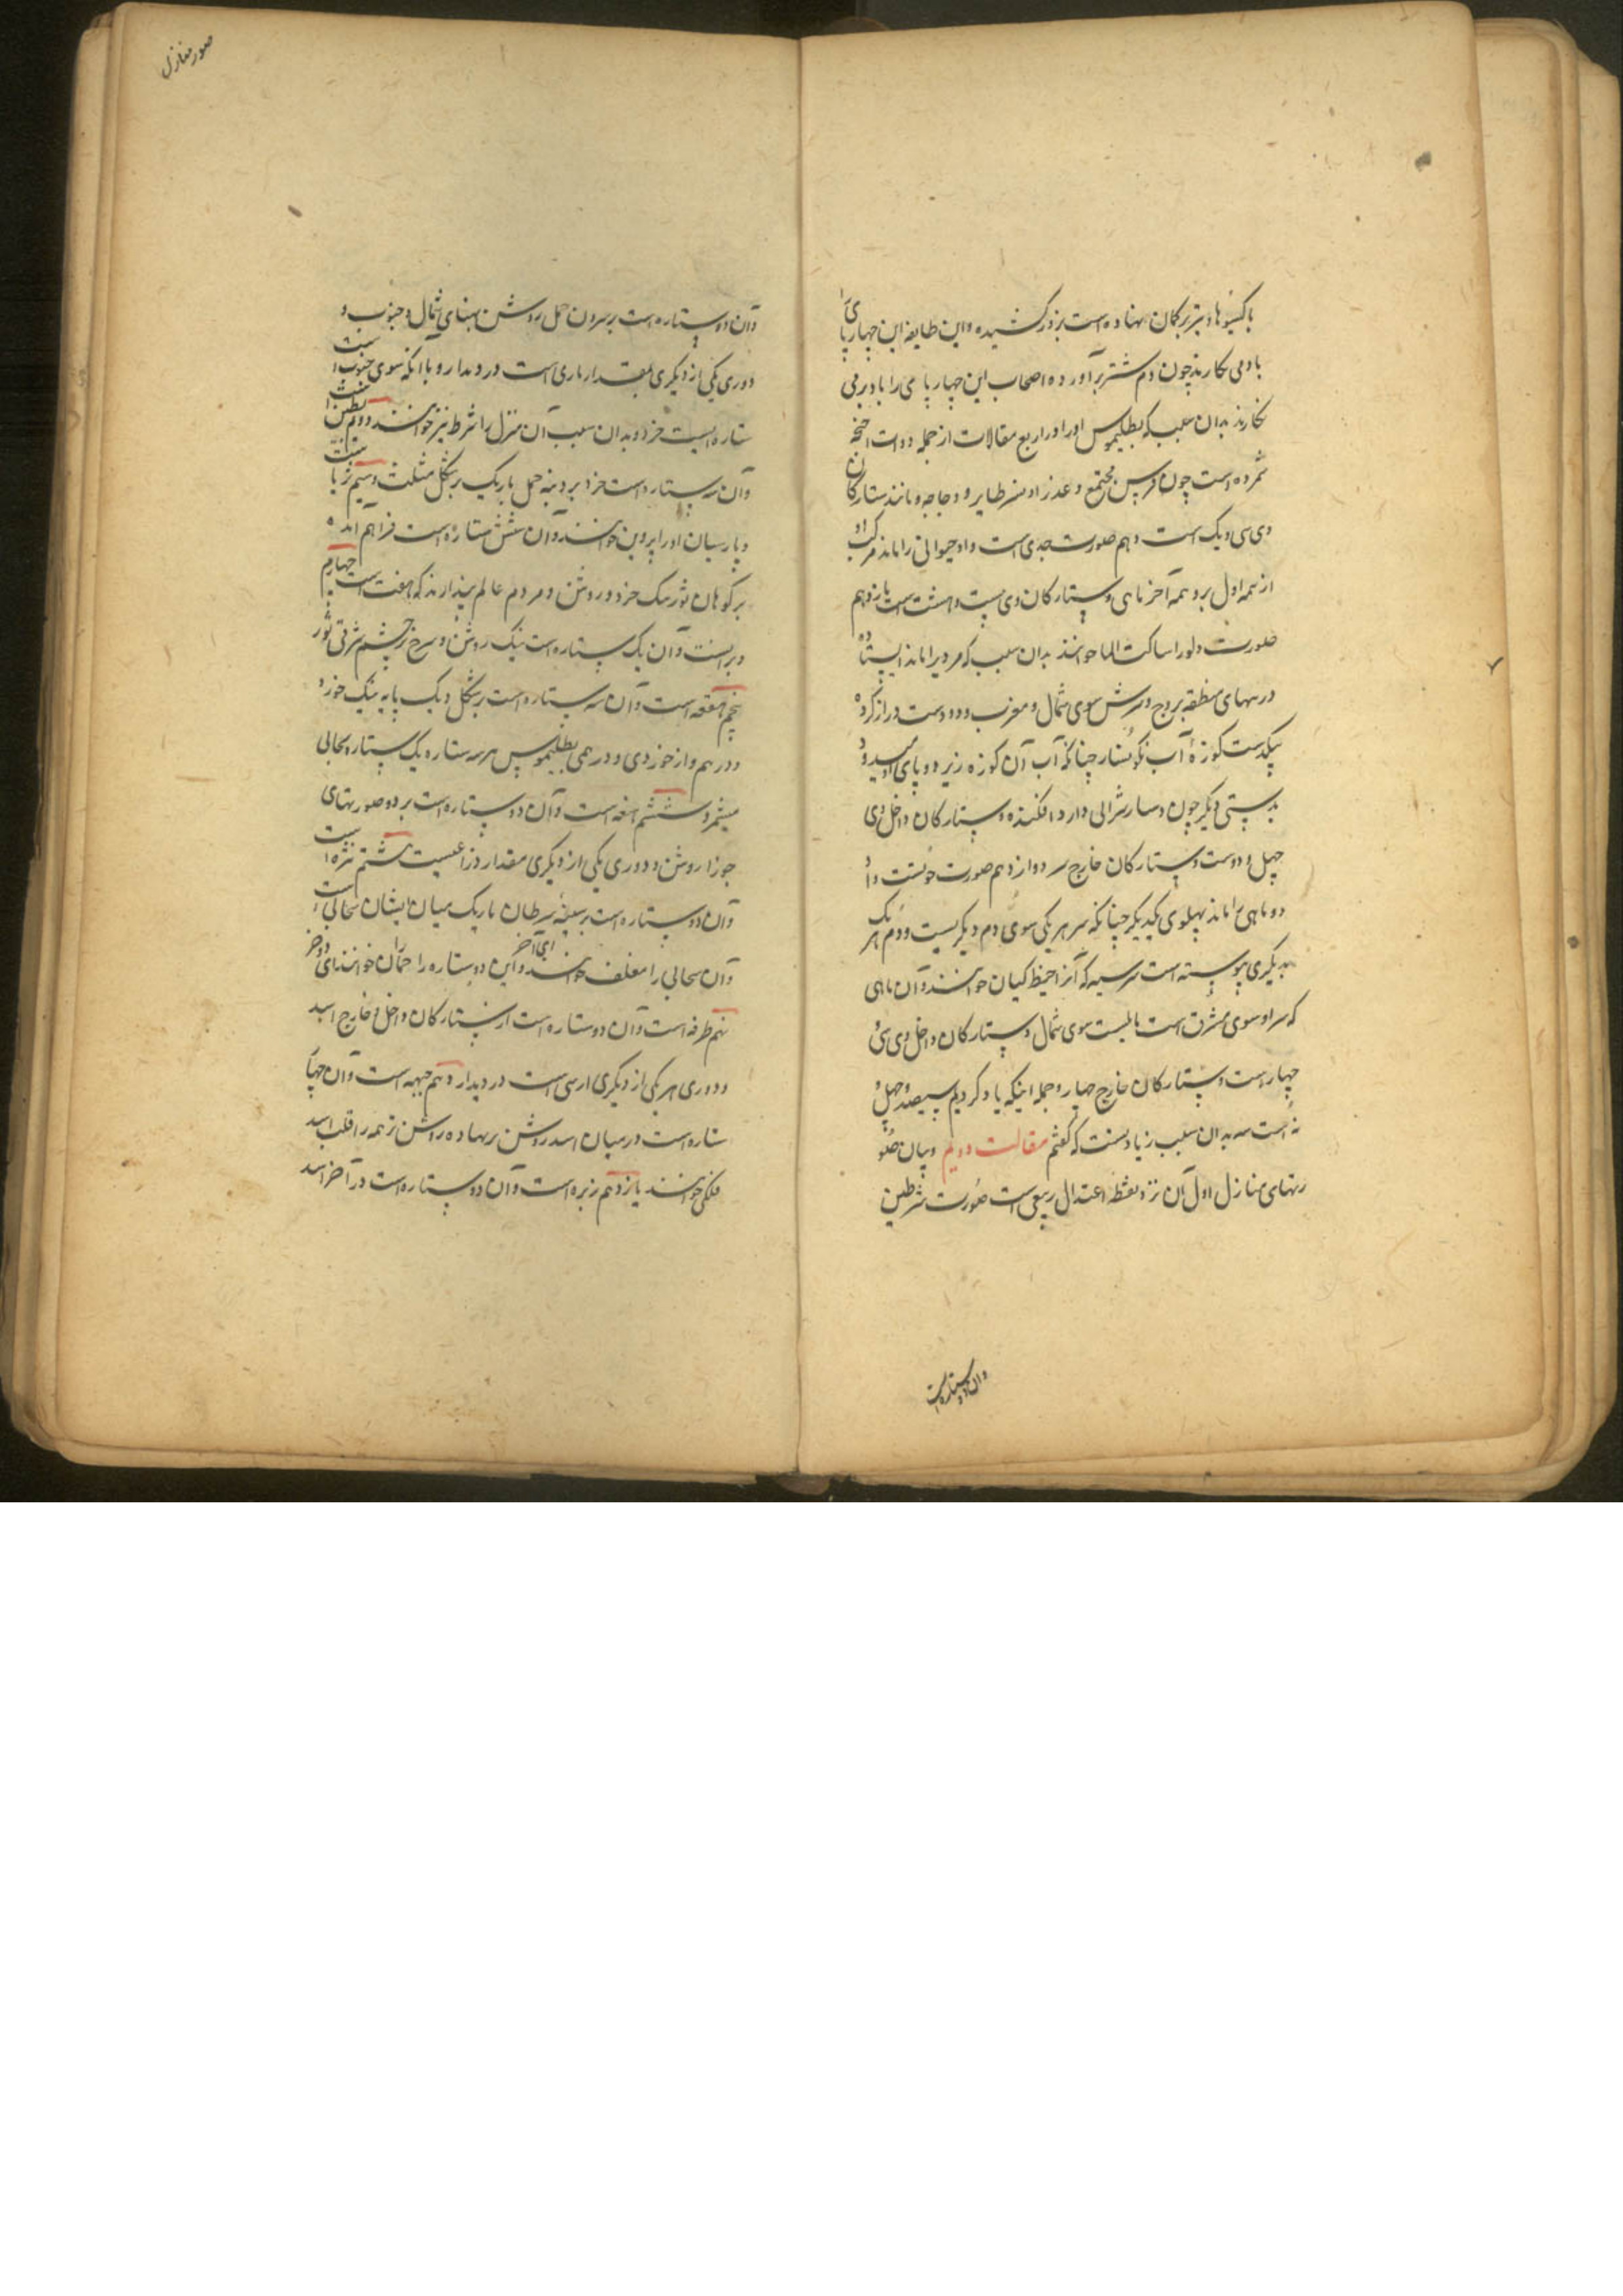 با کیسوها و تیر بر کمان نهاده است بزور کشیده و این طایفه این چهارپای را
با دمی نکارند چون دم شتر برآورده اصحاب این چهارپای را با دو برمی
نکارند بدان سبب که بطلیموس او را در اربع مقالات از جمله ذوات اجنحه
شمرده است چون فرس مجتمع و عذرا و نسر طایر و دجاجه و مانند ستارکان
وی سی و یک است دهم صورت جدی است و او حیوانی را ماند مرکب او
از نیمه اول بز و نیمه آخر ماهی و ستارکان وی بیست و هشت است یازدهم
صورت دلو را ساکب الما خوانند بدان سبب که مردی را ماند ایستاده
در پهنای منطقه بروج و سرش سوی شمال و مغرب و دو دست دراز کرده
بیکدست کوزه آب نکونسار چنانکه آب آن کوزه زیر دو پای او میرود
بدستی دیکر چون دستار شرابی دارد افکنده و ستارکان داخل وی
چهل و دوست و ستارکان خارج سه دوازدهم صورت حوتست و آن
دو ماهی را ماند پهلوی یکدیکر چنانکه سر هر یکی سوی دم دیکریست و دم هر یک
بدیکری پیوسته است بریسه که آنرا خیط کتان خوانند و آن ماهی
که سر او سوی مشرق است مایلست سوی شمال و ستارکان داخل وی سی و
چهار است و ستارکان خارج چهار و جمله اینکه یاد کردیم سیصد و چهل و
نه است سه بدان سبب زیادتست که کفتم مقالت دویم در بیان صو
رتهای منازل اول آن نزد نقطه اعتدال ربیعی است صورت شرطین
وان دو ستاره است
صور منازل
وآن دو ستاره است بر سرون حمل روشن بپهنای شمال و جنوب و
دوری یکی از دیکری بمقدار ماری است در دیدار و با آنکه سوی جنوب است
ستاره ایست خرد و بدان سبب آن منزل را شرط نیز خوانند دوم بطین است
وآن سه ستاره است خرد بر دنبه حمل باریک بر شکل مثلث سیم ثریا است
و پارسیان او را پروین خوانند و آن شش ستاره است فراهم آمده
بر کوهان ثور نیک خرد و روشن و مردم عالم پندارند که هفت است چهارم
دبرانست و آن یک ستاره است نیک روشن و سرخ بر چشم شرقی ثور
پنجم هقعه است و آن سه ستاره است بر شکل دیک پایه نیک خورد
و درهم و از خوردی و درهمی بطلیموس هر سه ستاره یک ستاره سحابی
میشمرد ششم هنعه است و آن دو ستاره است بر دو صورتهای
جوزا روشن و دوری یکی از دیکری مقدار ذراعیست هشتم نثره است
وآن دو ستاره است بر سینه سرطان باریک میان ایشان سحابی است
وآن سحابی را معلف خوانند و این دو ستاره را حماران خوانند ای دو خر
نهم طرفه است و آن دو ستاره است از ستارکان داخل و خارج اسد
و دوری هر یکی از دیکری ارسی است در دیدار دهم جبهه است و آن چهار
ستاره است در میان اسد روشن بر نهاده روشن تر همه را قلب اسد
ملکی خوانند یازدهم زبره است و آن دو ستاره است در آخر اسد